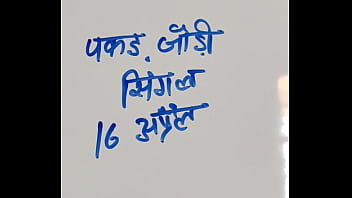 पकड. जोडी
सिंगल
16 अप्रैल